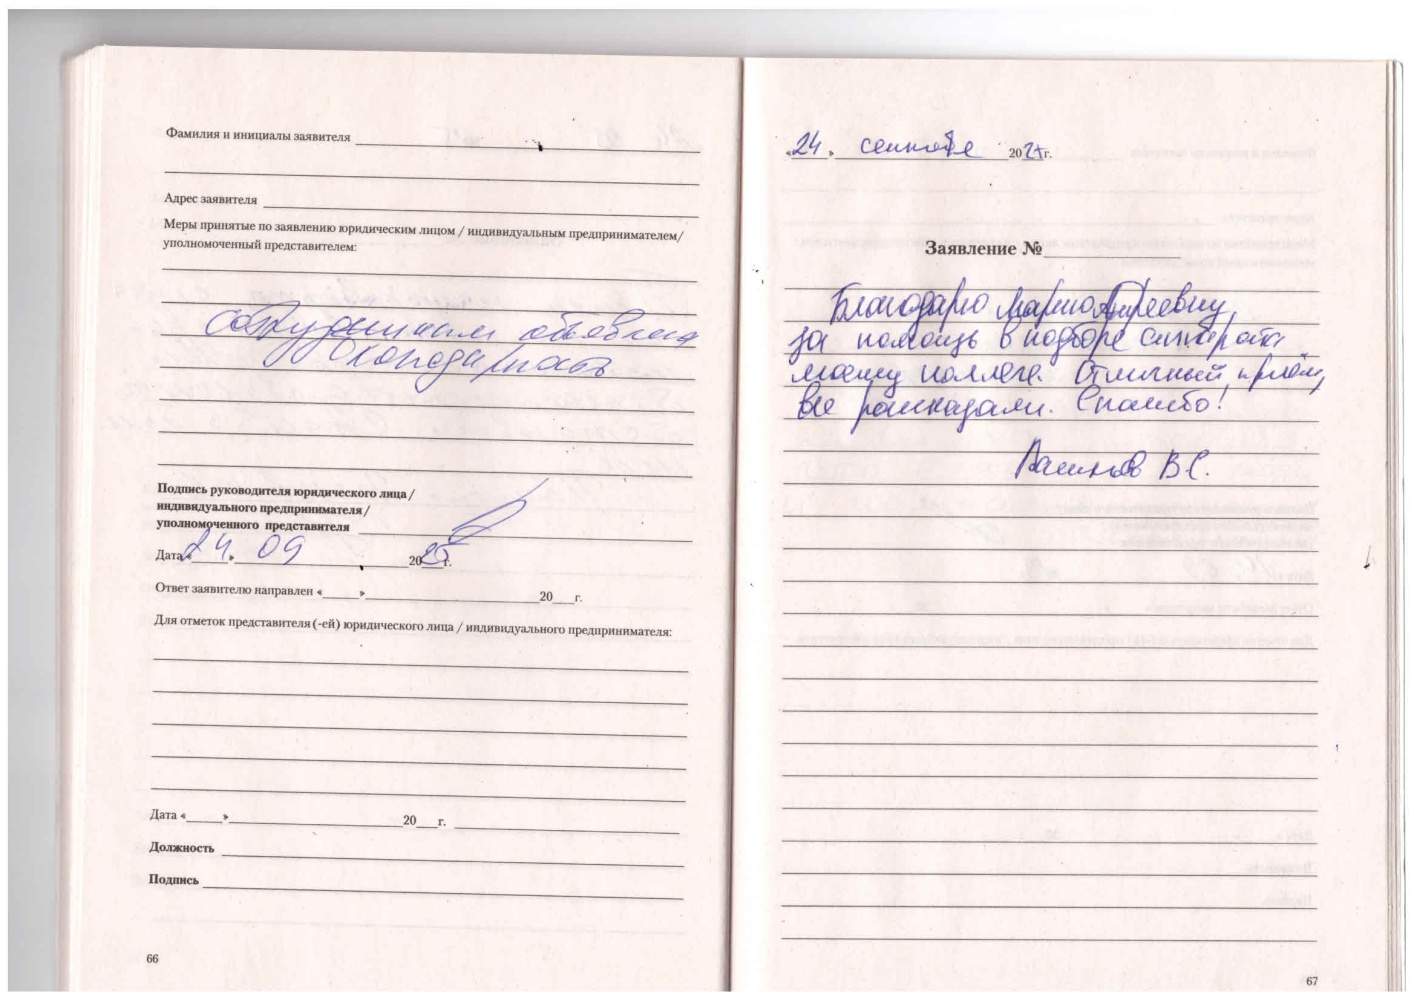 Фамилия и инициалы заявителя
Адрес заявителя
Меры принятые по заявлению юридическим лицом / индивидуальным предпринимателем/
уполномоченный представителем:
сотрудникам объявлена
благодарность
Подпись руководителя юридического лица/
индивидуального предпринимателя/
уполномоченного представителя
Дата «24» 09 2025 г.
Ответ заявителю направлен «___» ___ 20___г.
Для отметок представителя (-ей) юридического лица / индивидуального предпринимателя:
Дата «___» ___ 20___г.
Должность
Подпись
66
«24» сентября 2025 г.
Заявление №
Благодарю Марию Андреевну
за помощь в подборе
моему коллеге. Отличный приём,
все рассказали. Спасибо!
В.С.
67